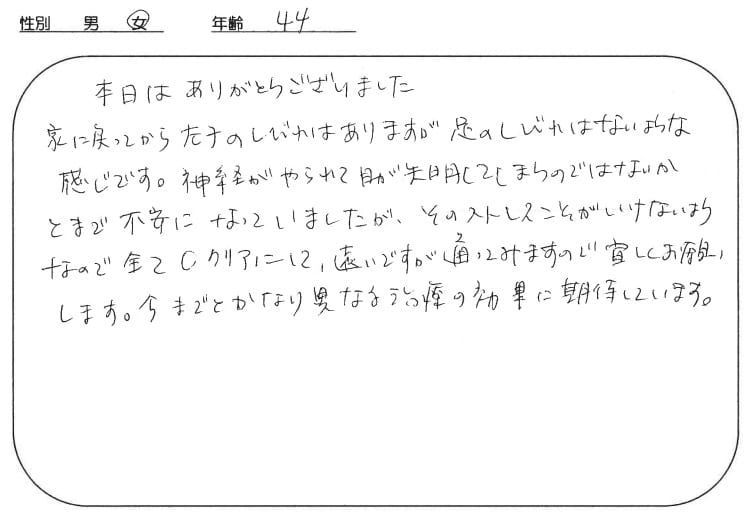 性別 男 女 年齢 44
本日はありがとうございました
家に戻ってから左手のしびれはありますが足のしびれはないような
感じです。神経がやられて目が失明してしまうのではないか
とまで不安になっていましたが、そのストレスこそがいけないよう
なので全てクリアにして、遠いですが通ってみますので宜しくお願い
します。今までとかなり異なる治療の効果に期待しています。